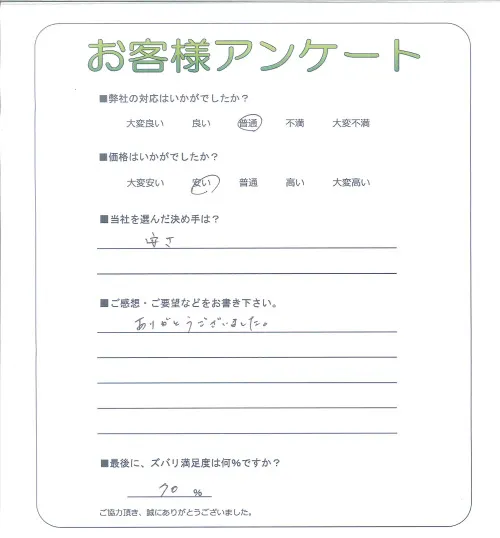 お客様アンケート
■弊社の対応はいかがでしたか?
大変良い 良い 普通 不満 大変不満
■価格はいかがでしたか?
大変安い 安い 普通 高い 大変高い
■当社を選んだ決め手は?
安さ
■ご感想・ご要望などをお書き下さい。
ありがとうございました。
■最後に、ズバリ満足度は何%ですか?
70 %
ご協力頂き、誠にありがとうございました。